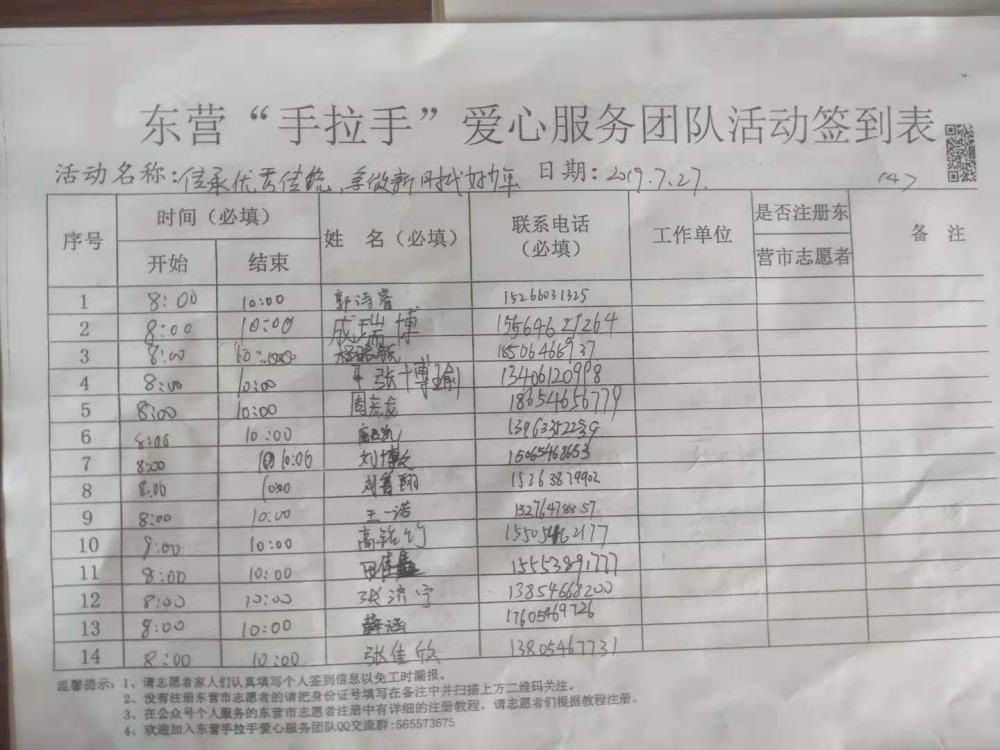 东营“手拉手”爱心服务团队活动签到表
活动名称:传承优秀传统,争做新时代好少年 日期:2019.7.27. (4)
序号 时间(必填) 姓 名(必填) 联系电话(必填) 工作单位 是否注册东营市志愿者 备 注
开始 结束
1 8:00 10:00 郭诗睿 15266031325
2 8:00 10:00 成瑞博 15564621264
3 8:00 10:00 18506466937
4 8:00 10:00 张博瑜 13406120998
5 8:00 10:00 周彦龙 18654656779
6 8:00 10:00
7 8:00 10:06 刘博文 15065468653
8 8:00 10:00 刘睿翔 15263879902
9 8:00 10:00 王一诺 13276478857
10 8:00 10:00 高铭 15505462177
11 8:00 10:00 田佳鑫 15553891777
12 8:00 10:00 张济宇 13854668200
13 8:00 10:00 薛涵 17605469726
14 8:00 10:00 张佳欣 13805467731
温馨提示:1、请志愿者家人们认真填写个人签到信息以免工时漏报。
2、没有注册东营市志愿者的请把身份证号填写在备注中并扫描上方二维码关注。
3、在公众号个人服务的东营市志愿者注册中有详细的注册教程,请志愿者们根据教程注册。
4、欢迎加入东营手拉手爱心服务团队QQ交流群:565573675